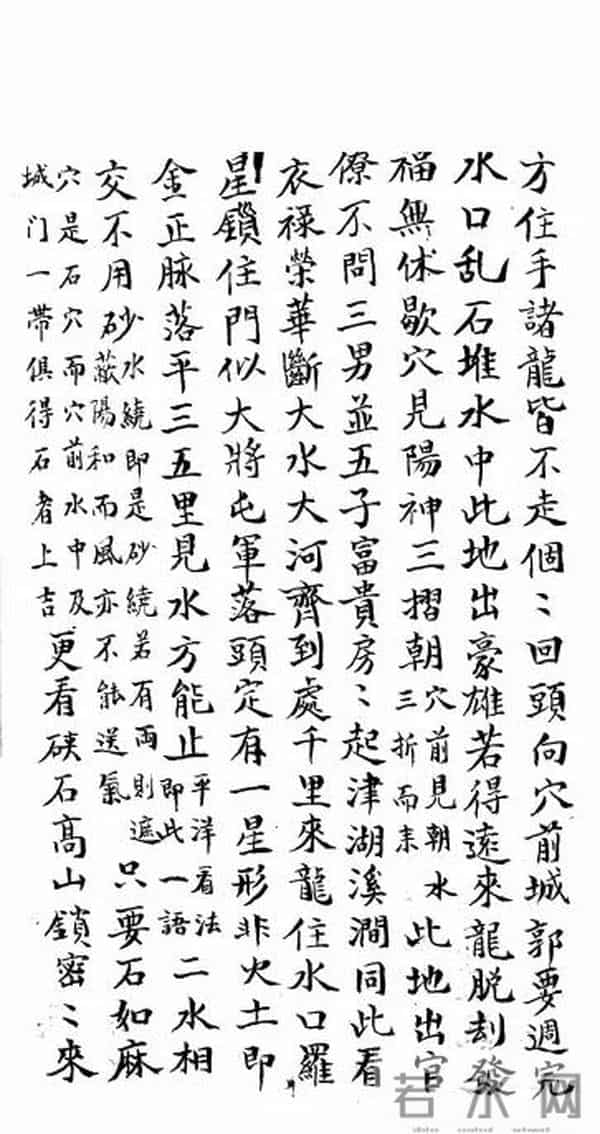 方住手諸龍皆不走個〻回頭向穴前城郭要週完
水口乱石堆水中此地出豪雄若得遠來龍脱刦發
福無休歇穴見陽神三摺朝穴前見朝水三折而耒此地出官
僚不問三男並五子富貴房〻起津湖溪澗同此看
衣禄榮華斷大水大河齊到處千里來龍住水口羅
星鎖住門似大將屯軍落頭定有一星形非火土即
金正脉落平三五里見水方能止平洋看法即此一語二水相
交不用砂水繞即是砂繞若有両則遮蔽陽和而風亦不能送氣只要石如麻
穴是石穴而穴前水中及城门一帶俱得石者上吉更看硤石高山鎖密〻來
若水网